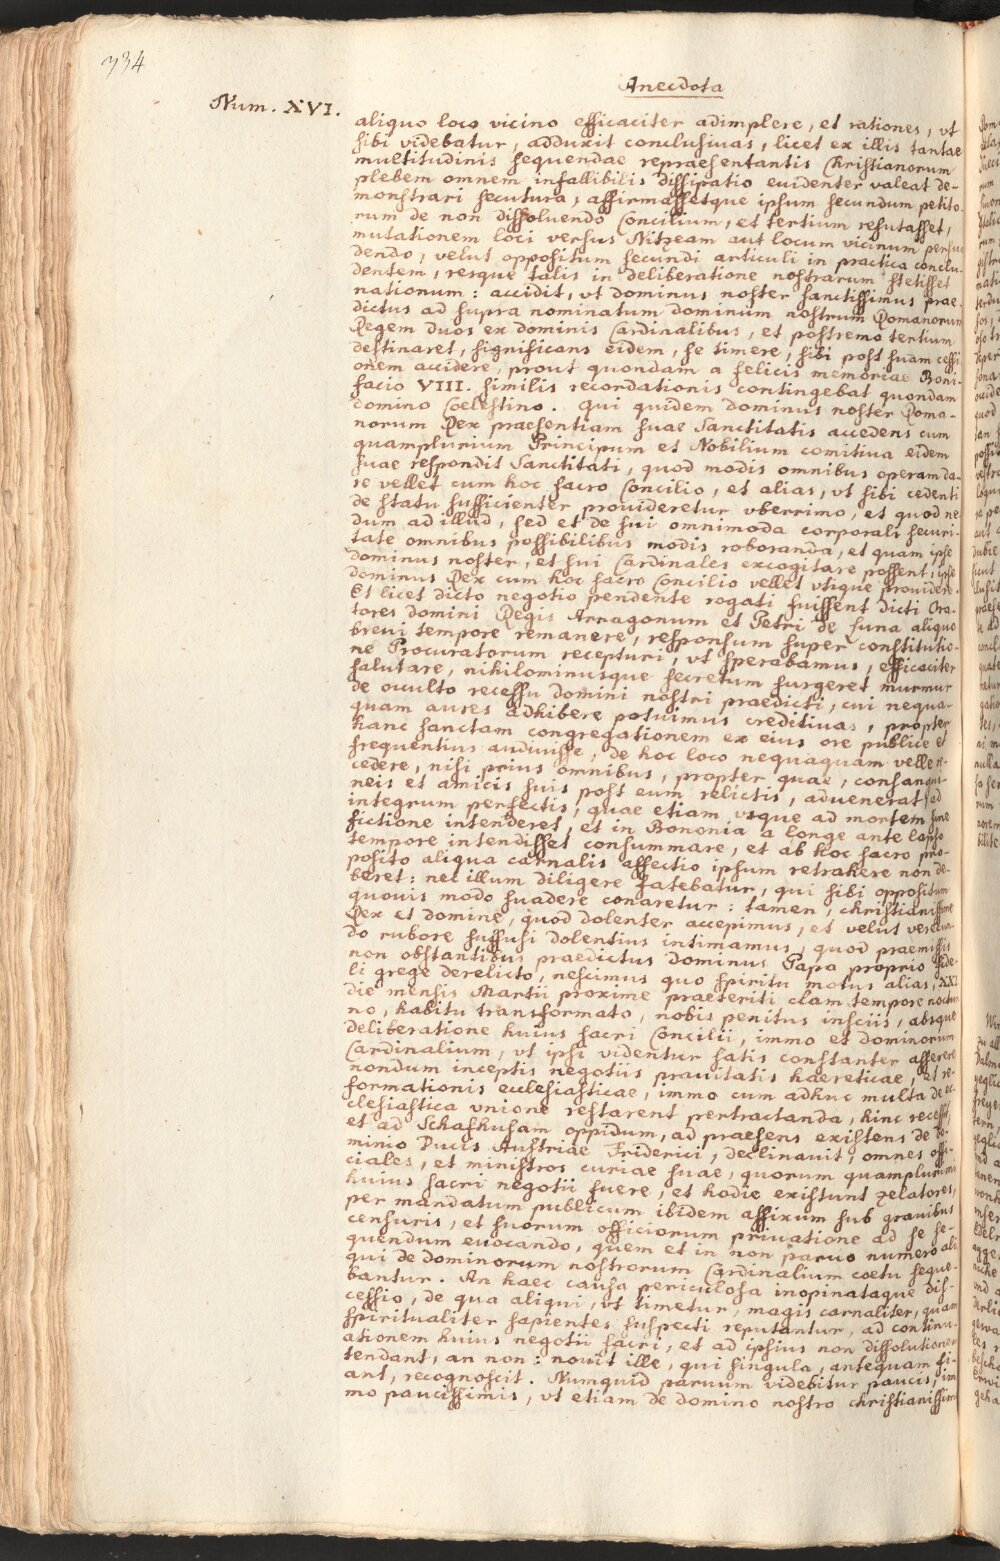 734
Anecdota
Num. XVI.
aliquo loco vicino efficaciter adimplere, et rationes, vt
sibi videbatur, adduxit conclusiuas, licet ex illis tantae
multitudinis sequendae repraesentantis Christianorum
plebem omnem infallibilis dissipatio euidenter valeat de-
monstrari secutura, affirmassetque ipsum secundum petito-
rum de non dissoluendo Concilium, et tertium refutasset,
mutationem loci versus Nitzeam aut locum vicinum persua
dendo, velut oppositum secundi articuli in practica conclu-
dentem, resque talis in deliberatione nostrarum stetisset
nationum: accidit, vt dominus noster sanctissimus prae-
dictus ad supra nominatum dominum nostrum Romanorum
Regem duos ex dominis Cardinalibus, et postremo tertium
destinaret, significans eidem, se timere, sibi post suam cessi
onem accidere, prout quondam a felicis memoriae Boni-
facio VIII. similis recordationis contingebat quondam
domino Coelestino. Qui quidem dominus noster Roma-
norum Rex praesentiam suae Sanctitatis accedens cum
quamplurium Principum et Nobilium comitiua eidem
suae respondit Sanctitati, quod modis omnibus operam da-
re vellet cum hoc sacro Concilio, et alias, vt sibi cedenti
de statu sufficienter prouideretur vberrimo, et quod ne
dum ad illud, sed et de sui omnimoda corporali securi-
tate omnibus possibilibus modis roboranda, et quam ipse
dominus noster, et sui Cardinales excogitare possent, ipse
dominus Rex cum hoc sacro Concilio vellet vtique prouidere.
Et licet dicto negotio pendente rogati fuissent dicti Ora-
tores domini Regis Arragonum et Petri de Luna aliquo
breui tempore remanere, responsum super constitutio-
ne Procuratorum recepturi, vt sperabamus, efficaciter
salutare, nihilominusque secretum surgeret murmur
de occulto recessu domini nostri praedicti, cui nequa-
quam aures adhibere potuimus creditiuas, propter
hanc sanctam congregationem ex eius ore publice et
frequentius audiuisse, de hoc loco nequaquam velle re-
cedere, nisi prius omnibus, propter quae, consangui-
neis et amicis suis post eum relictis, aduenerat, ad
integrum perfectis, quae etiam vsque ad mortem sine
fictione intenderet, et in Bononia a longe ante lapso
tempore intendisset consummare, et ab hoc sacro pro-
posito aliqua carnalis affectio ipsum retrahere non de-
beret: nec illum diligere fatebatur, qui sibi oppositum
quouis modo suadere conaretur: tamen, christianissime
Rex et domine, quod dolenter accepimus, et velut verecun-
do rubore suffusi dolentius intimamus, quod praemissis
non obstantibus praedictus dominus Papa proprio fide-
li grege derelicto, nescimus quo spiritu motus alias, XXI
die mensis Martii proxime praeteriti clam tempore noctur
no, habitu transformato, nobis penitus insciis, absque
deliberatione huius sacri Concilii, immo et dominorum
Cardinalium, vt ipsi videntur satis constanter asserere
nondum inceptis negotiis prauitatis haereticae, et re-
formationis ecclesiasticae, immo cum adhuc multa de ec-
clesiastica vnione restarent pertractanda, hinc recessit,
et ad Schafhusam oppidum, ad praesens existens de do-
minio Ducis Austriae Friderici, declinauit, omnes offi-
ciales, et ministros curiae suae, quorum quamplurimi
huius sacri negotii fuere, et hodie existunt zelatores,
per mandatum publicum ibidem affixum sub grauibus
censuris, et suorum officiorum priuatione ad se se-
quendum euocando, quem et in non paruo numero ali
qui de dominorum nostrorum Cardinalium coetu seque-
bantur. An haec causa periculosa inopinataque dis-
cessio, de qua aliqui, vt timetur, magis carnaliter, quam
spiritualiter sapientes suspecti reputantur, ad continu-
ationem huius negotii sacri, et ad ipsius non dissolutionem
tendant, an non: nouit ille, qui singula, antequam fi-
ant, recognoscit. Numquid paruum videbitur paucis, im
mo paucissimis, vt etiam de domino nostro christianissimo